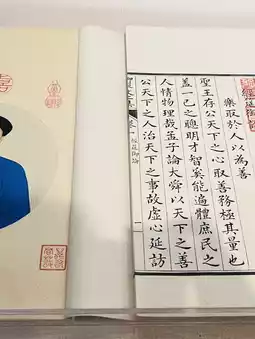 樂取於人以為善
聖王存公天下之心取善務極其量也
蓋一己之聰明才智奚能遍體庶民之
人情物理哉孟子論大舜以天下之善
公天下之人治天下之事故虛心延訪